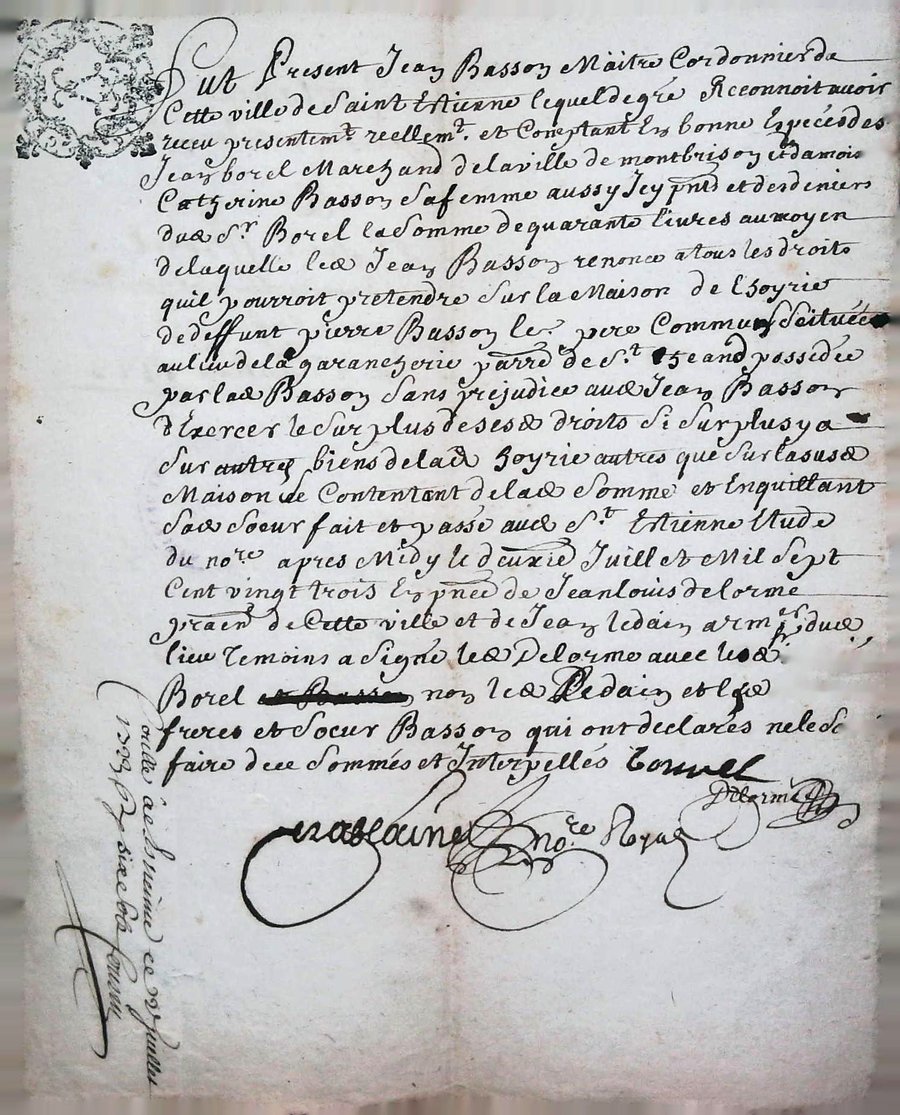 Fut Present Jean Basson Maitre Cordonnier da
Cette ville de Saint Estienne lequel de gré Reconnoit avoir
receu presentemt. reellemt. et Comptant En bonne Espéces des
Jean borel Marchand de la ville de montbrison et damois
Catherine Basson Sa femme aussy Icy pnts et des deniers
dud Sr. Borel la Somme de quarante livres au moyen
de laquelle led Jean Basson renonce a tous les droits
quil pourroit pretendre Sur la Maison de l'hoyrie
de deffunt pierre Basson le pere Commun Scituée
au lieu de la garancherie parre. de St. Jean possedée
par lad Basson Sans prejudice aud Jean Basson
d'Exercer le Surplus de sesd droits Si Surplus y a
Sur autres biens de lad hoyrie autres que Sur la susd
Maison Se Contentant de lad Somme et En quillant
Sad Soeur fait et passé aud St. Estienne Etude
du nore apres Midy le deuxie Juillet Mil Sept
Cent vingt trois En pnce de Jean louis delorme
praen de Cette ville et de Jean ledain armer dud
lieu temoins a Signé led Delorme avec led Sr.
Borel non led Ledain et lesd
freres et Soeur Basson qui ont declarés ne le Sc
faire de ce Sommés et Interpellés borel
Delorme
nore Royal
Controllé a St Etienne ce juillet
1723 Rx six sols